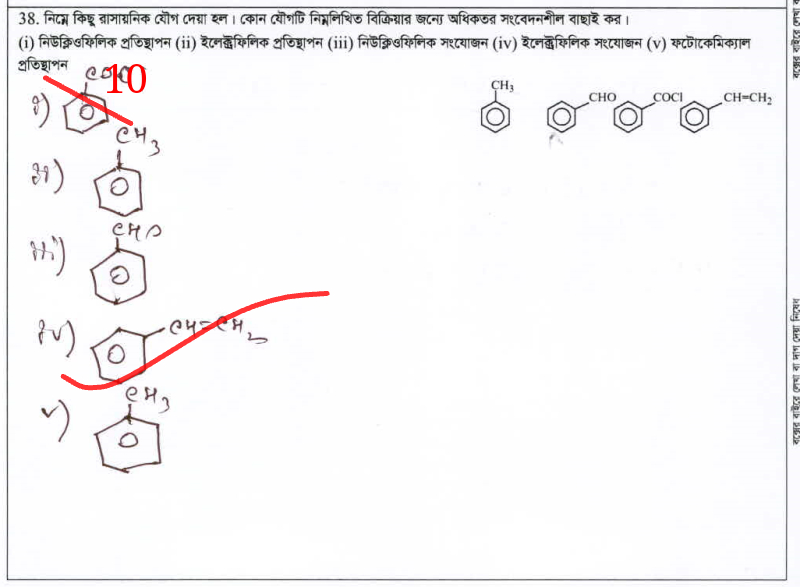 38. নিম্নে কিছু রাসায়নিক যৌগ দেয়া হল। কোন যৌগটি নিম্নলিখিত বিক্রিয়ার জন্যে অধিকতর সংবেদনশীল বাছাই কর।
(i) নিউক্লিওফিলিক প্রতিস্থাপন (ii) ইলেক্ট্রফিলিক প্রতিস্থাপন (iii) নিউক্লিওফিলিক সংযোজন (iv) ইলেক্ট্রফিলিক সংযোজন (v) ফটোকেমিক্যাল
প্রতিস্থাপন
CH₃
CHO
COCl
CH=CH₂
10
i)
ii)
CH₃
iii)
CHO
iv)
CH=CH₂
v)
CH₃
বক্সের বাইরে লেখা বা দাগ দেয়া নিষেধ